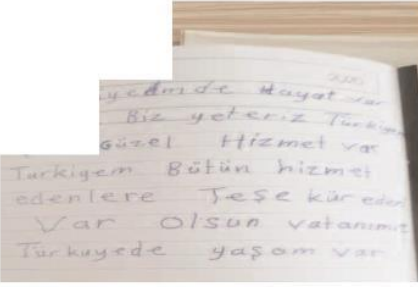 yemde Hayat var
Biz yeteriz Türkiyem
Güzel Hizmet var
Türkiyem Bütün hizmet
edenlere Teşe kür eder
Var Olsun vatanımız
Türkuyede yaşam var